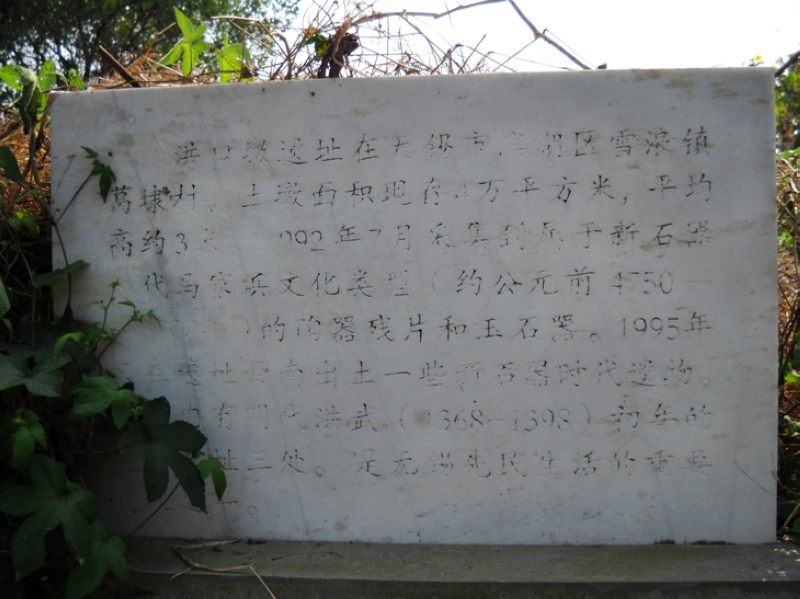 洪口墩遗址在无锡市滨湖区雪浪镇
葛埭村。土墩面积现存4万平方米，平均
高约3米。1992年7月采集到属于新石器
代马家浜文化类型（约公元前4750—
年）的陶器残片和玉石器。1995年
在遗址西南出土一些新石器时代遗物。
内有明代洪武（1368—1398）初年的
址二处。是无锡先民生活的重要
。